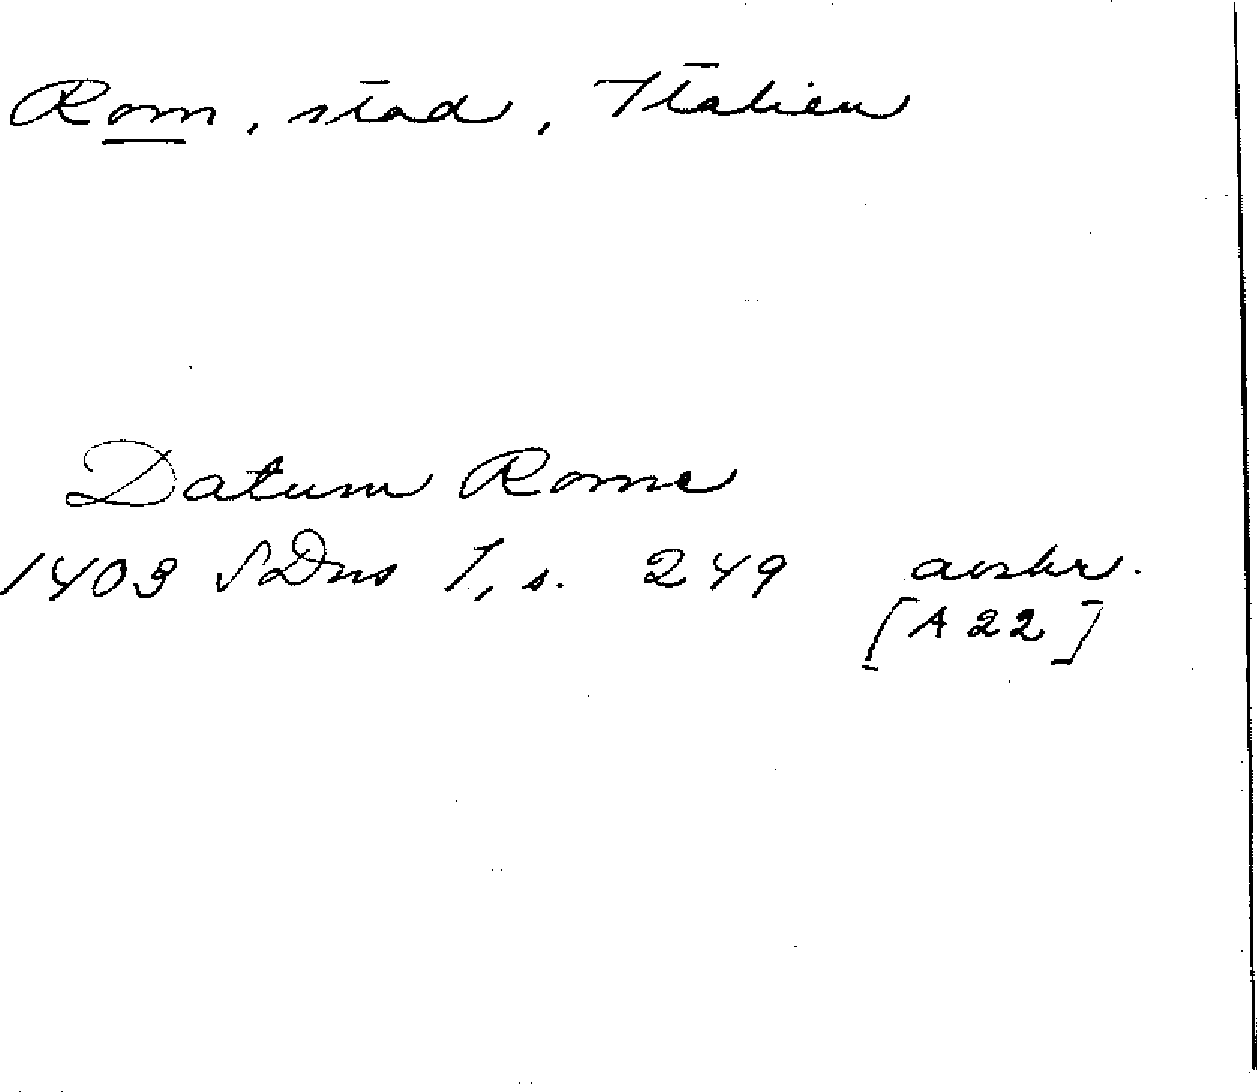 Rom, stad, Italien
Datum Rome
1403 SDns 1, s. 249 avskr.
[A 22]